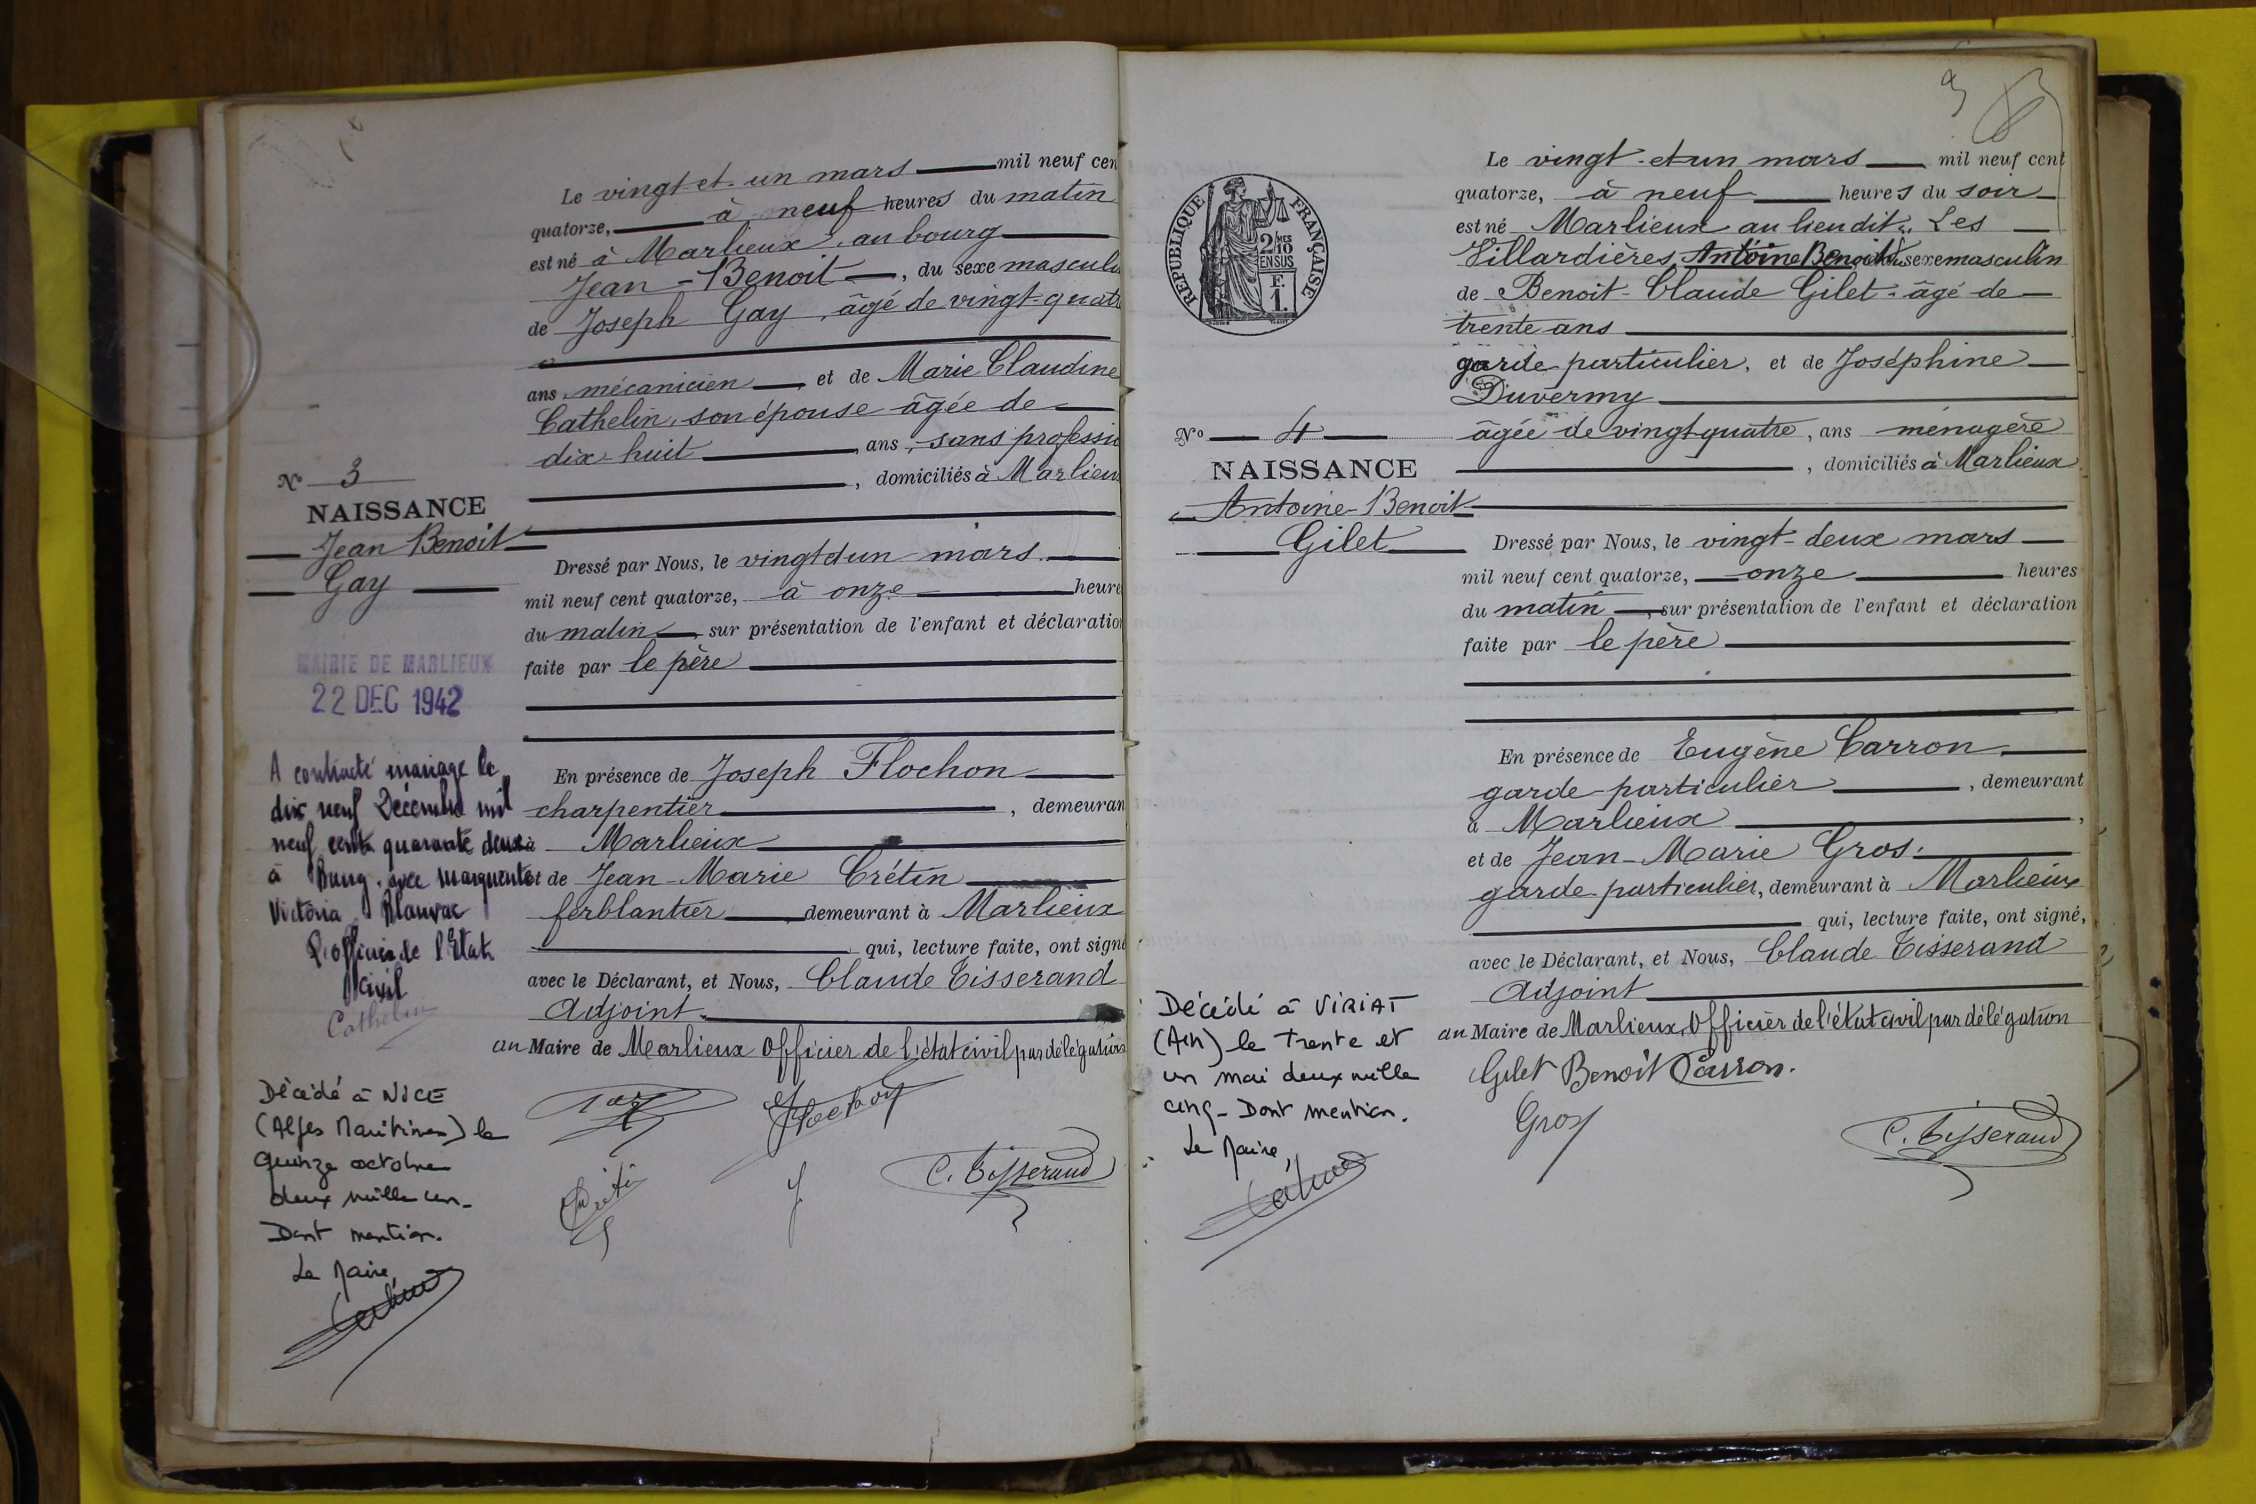 Le vingt-et-un mars mil neuf cen
quatorze, à neuf heures du matin
est né à Marlieux, au bourg
Jean-Benoit, du sexe masculi
de Joseph Gay, âgé de vingt-quatr
ans, mécanicien et de Marie Claudine
Cathelin, son épouse âgée de
dix-huit, ans, sans professi
, domiciliés à Marlieux
N° 3
NAISSANCE
Jean Benoit
Gay
Dressé par Nous, le vingt et un mars
mil neuf cent quatorze, à onze heure
du matin, sur présentation de l'enfant et déclaratio
faite par le père
MAIRIE DE MARLIEUX
22 DEC 1942
A contracté mariage le
dix neuf Décembre mil
neuf cent quarante deux
à Bourg, avec Marguerite
Victoria
L'officier de l'Etat
civil
Cathelin
En présence de Joseph Flochon
charpentier, demeuran
à Marlieux
et de Jean-Marie Crétin
ferblantier demeurant à Marlieux
qui, lecture faite, ont signé
avec le Déclarant, et Nous, Claude Tisserand
Adjoint
au Maire de Marlieux Officier de l'état civil par délégation
Gay Flochon
Crétin C. Tisserand
Décédé à NICE
(Alpes Maritimes) le
quinze octobre
deux mille un.
Dont mention.
Le Maire,
Le vingt-et-un mars mil neuf cent
quatorze, à neuf heures du soir
est né Marlieux au lieu dit: Les
Villardières, Antoine Benoit, du sexe masculin
de Benoit-Claude Gilet, âgé de
trente ans
garde particulier, et de Joséphine
Duvermy
âgée de vingt quatre, ans ménagère
, domiciliés à Marlieux
REPUBLIQUE FRANÇAISE
2/10 MES
EN SUS
F.
1.
N° 4
NAISSANCE
Antoine-Benoit
Gilet
Dressé par Nous, le vingt-deux mars
mil neuf cent quatorze, onze heures
du matin, sur présentation de l'enfant et déclaration
faite par le père
En présence de Eugène Carron
garde-particulier, demeurant
à Marlieux,
et de Jean-Marie Gros
garde particulier, demeurant à Marlieux
qui, lecture faite, ont signé,
avec le Déclarant, et Nous, Claude Tisserand
Adjoint
au Maire de Marlieux, Officier de l'état civil par délégation
Gilet Benoit Carron.
Gros C. Tisserand
Décédé à VIRIAT
(Ain) le trente et
un mai deux mille
cinq - Dont mention.
Le Maire,